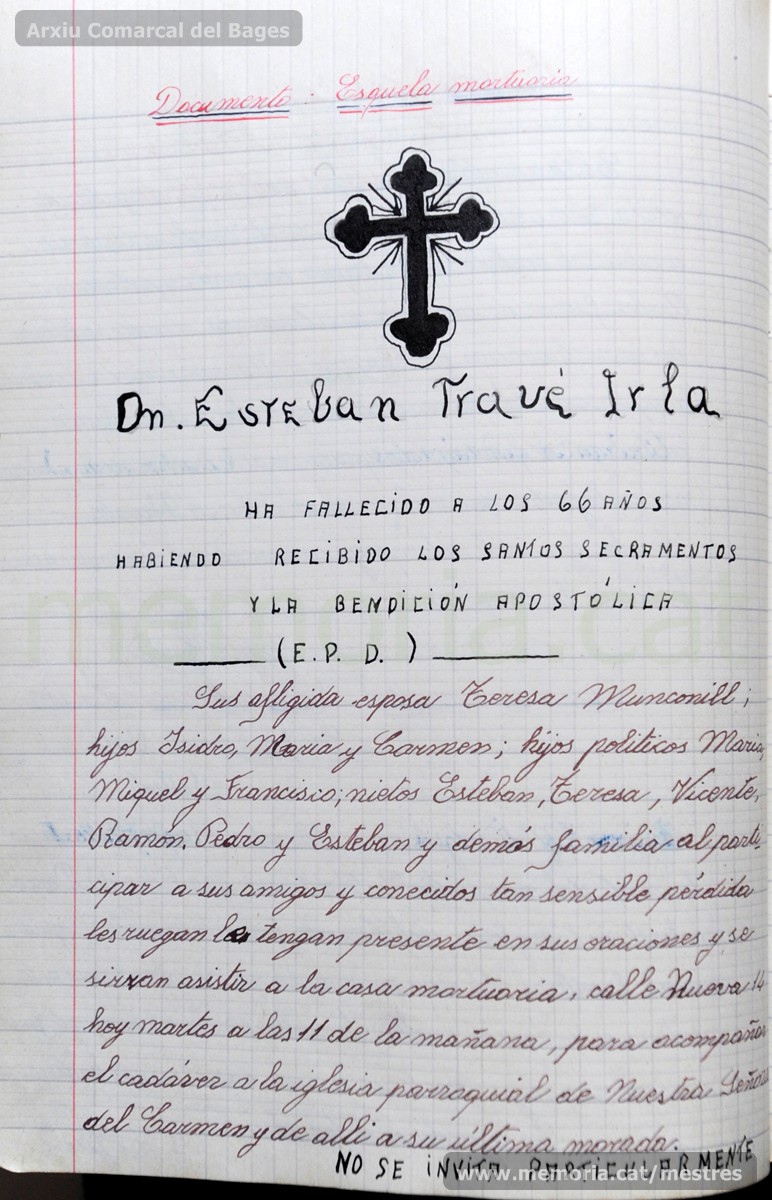 Arxiu Comarcal del Bages
Documento - Esquela mortuoria
Dn. Esteban Travé Irla
HA FALLECIDO A LOS 66 AÑOS
HABIENDO RECIBIDO LOS SANTOS SECRAMENTOS
Y LA BENDICIÓN APOSTÓLICA
(E. P. D. )
Sus afligida esposa Teresa Munconill;
hijos Isidro, Maria y Carmen; hijos politicos Maria,
Miquel y Francisco; nietos Esteban, Teresa, Vicente,
Ramón, Pedro y Esteban y demás familia al parti-
cipar a sus amigos y conecidos tan sensible pérdida
les ruegan le tengan presente en sus oraciones y se
sirvan asistir a la casa mortuoria, calle Nueva 14
hoy martes a las 11 de la mañana, para acompañar
el cadáver a la iglesia parroquial de Nuestra Señora
del Carmen y de alli a su última morada.
NO SE INVITA PARTICULARMENTE
www.memoria.cat/mestres
memoria.cat